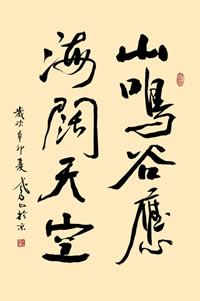 山鳴谷應
海闊天空
歲次辛卯夏
於京